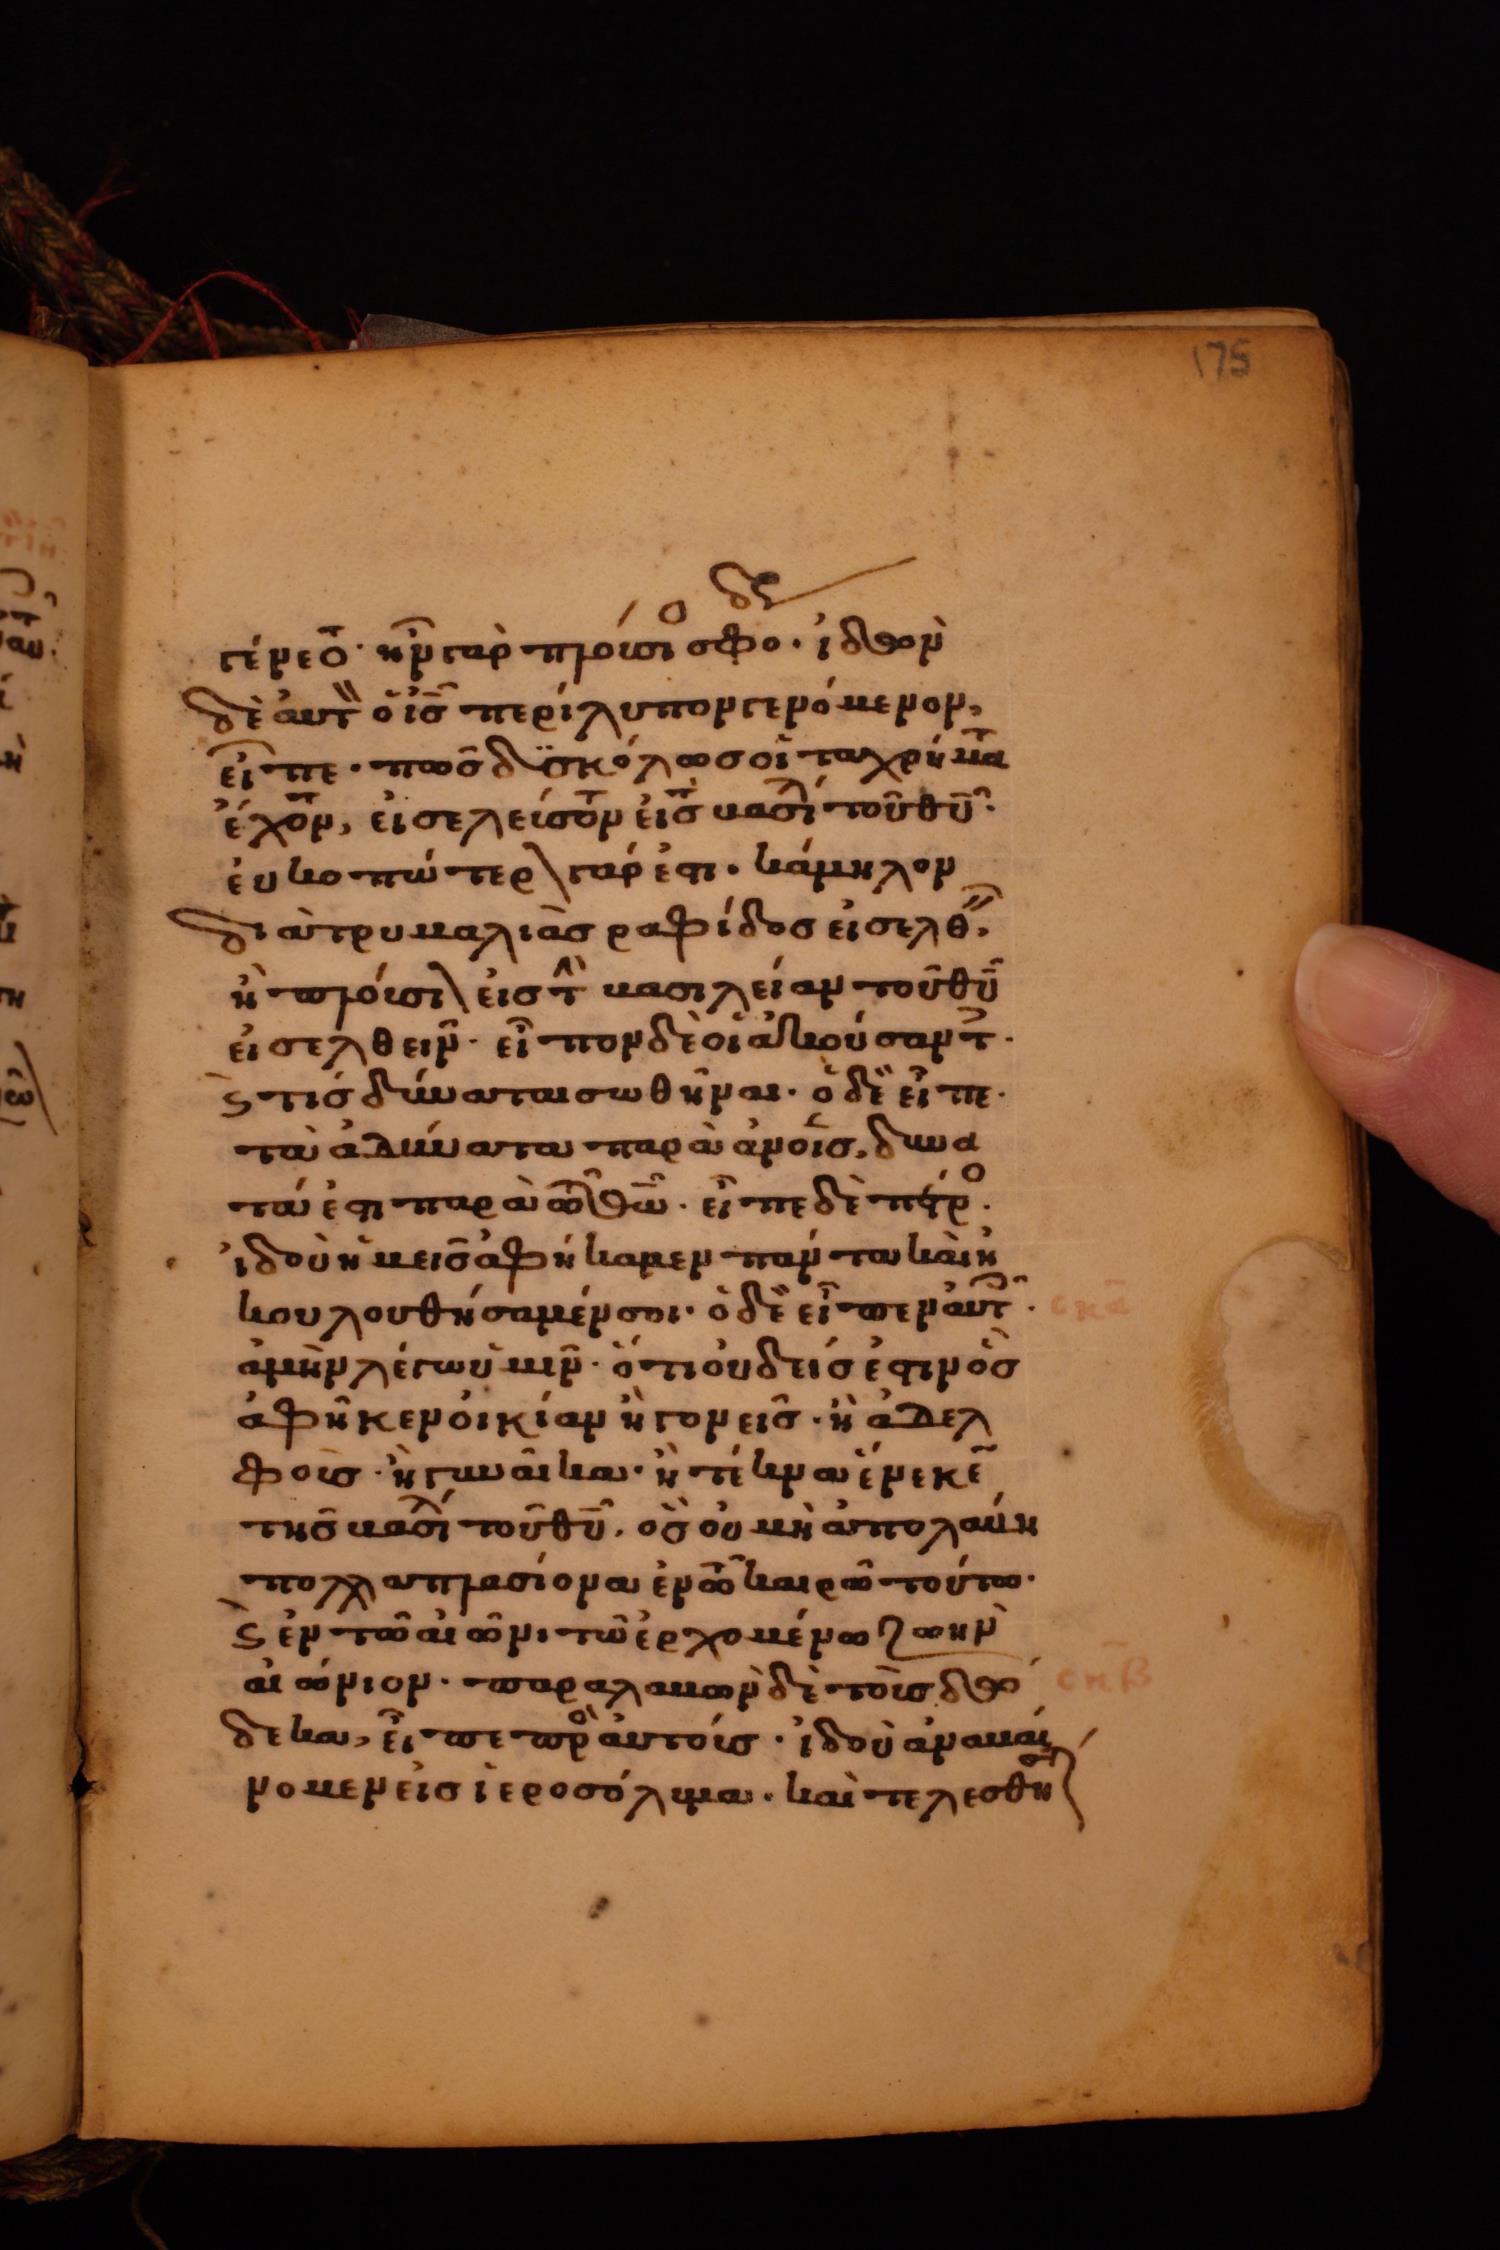 175
γένετο· ἦν γὰρ πλούσιος σφόδρα· ἰδὼν
δὲ αὐτὸν ὁ ἰς περίλυπον γενόμενον,
εἶπε· πῶς δυσκόλως οἱ τὰ χρήματα
ἔχοντες, εἰσελεύσονται εἰς τὴν βασιλείαν τοῦ θυ·
εὐκοπώτερον γάρ ἐστι· κάμηλον
διὰ τρυμαλιᾶς ραφίδος εἰσελθεῖν,
ἢ πλούσιον εἰς τὴν βασιλείαν τοῦ θυ
εἰσελθεῖν· εἶπον δὲ οἱ ἀκούσαντες·
καὶ τίς δύναται σωθῆναι· ὁ δὲ εἶπε·
τὰ ἀδύνατα παρὰ ἀνοις, δυνα
τά ἐστι παρὰ τῶ θῶ· εἶπε δὲ πέτρος·
ἰδοὺ ἡμεῖς ἀφήκαμεν πάντα καὶ ἠ
κουλουθήσαμέν σοι· ὁ δὲ εἶπεν αὐτοῖς· σκα
ἀμὴν λέγω ὑμῖν· ὅτι οὐδείς ἐστιν ὃς
ἀφῆκεν οἰκίαν ἢ γονεῖς· ἢ ἀδελ
φοὺς· ἢ γυναῖκα· ἢ τέκνα ἕνεκεν
τῆς βασιλείας τοῦ θυ, ὃς οὐ μὴ ἀπολάβη
πολλαπλασίονα ἐν τῶ καιρῶ τούτω·
καὶ ἐν τῶ αἰῶνι τῶ ἐρχομένω ζωὴν
αἰώνιον· παραλαβὼν δὲ τοὺς δώ σκβ
δεκα, εἶπε πρὸς αὐτούς· ἰδοὺ ἀναβαί
νομεν εἰς ἱεροσόλυμα· καὶ τελεσθή